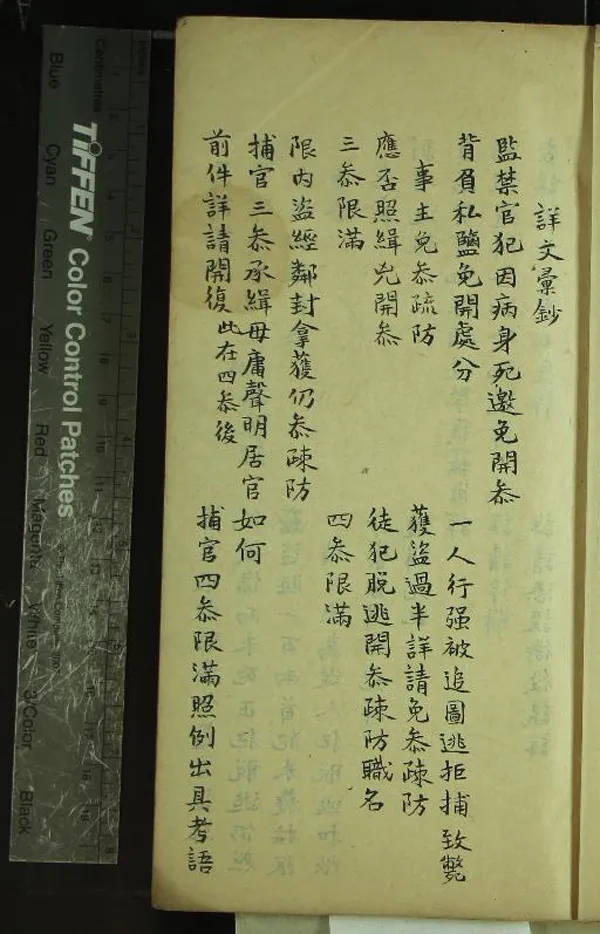 詳文彙鈔
監禁官犯因病身死邀免開叅
背負私鹽免開處分
一人行强被追圖逃拒捕致斃
事主免叅疏防
獲盜過半詳請免叅疎防
應否照緝兇開叅
徒犯脫逃開叅疎防職名
三叅限滿
四叅限滿
限内盜經鄰封拿獲仍叅疎防
捕官三叅承緝毋庸聲明居官如何
前件詳請開復此在四叅後
捕官四叅限滿照例出具考語
TIFFEN® Color Control Patches
Inches
Centimetres
Blue
Cyan
Green
Yellow
Red
Magenta
White
3/Color
Black